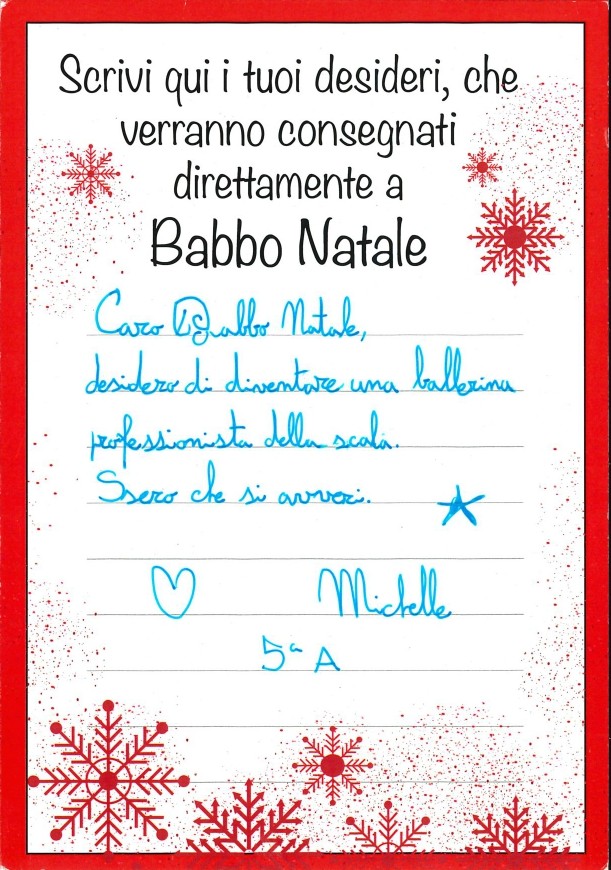 Scrivi qui i tuoi desideri, che
verranno consegnati
direttamente a
Babbo Natale
Caro Babbo Natale,
desidero di diventare una ballerina
professionista della scala.
Spero che si avveri.
Michelle
5ª A